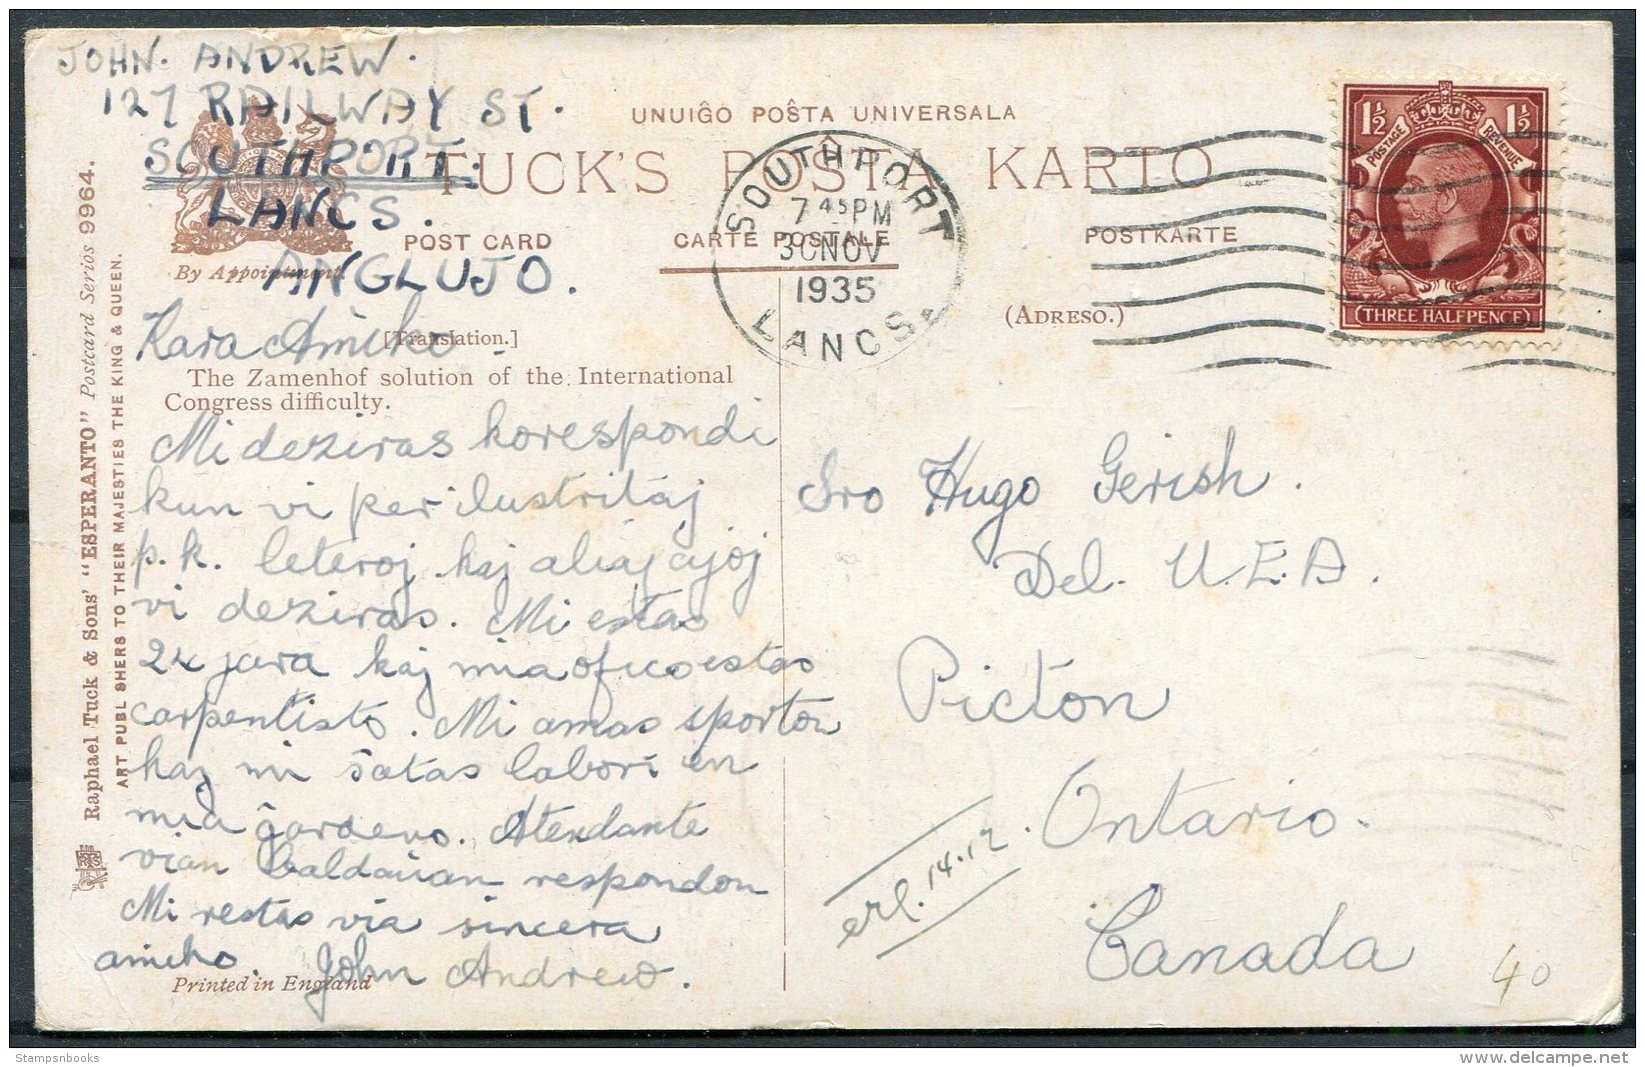 JOHN. ANDREW.
127 RAILWAY ST.
SOUTHPORT.
LANCS.
ANGLUJO.
UNUIĜO POŜTA UNIVERSALA
TUCK'S POŜTA KARTO
POST CARD
CARTE POSTALE
POSTKARTE
By Appointment
(ADRESO.)
SOUTHPORT
7 45 PM
30 NOV
1935
LANCS.
1½ 1½
POSTAGE REVENUE
THREE HALFPENCE
Raphael Tuck & Sons' "ESPERANTO" Postcard Series 9964.
ART PUBLISHERS TO THEIR MAJESTIES THE KING & QUEEN.
Kara Amiko
[Translation.]
The Zamenhof solution of the International
Congress difficulty.
Mi deziras korespondi
kun vi per ilustritaj
p.k. leteroj kaj aliaj ajoj
vi deziras. Mi estas
24 jara kaj mia ofico estas
carpentisto. Mi amas sporton
kaj mi ŝatas labori en
mia ĝardeno. Atendante
vian baldaŭan respondon
Mi restas via sincera
amiko. John Andrew.
Printed in England
Sro Hugo Gerish.
Del. U.E.A.
Picton
Ontario.
Canada
14.12
40
Stampsnbooks
delcampe.net